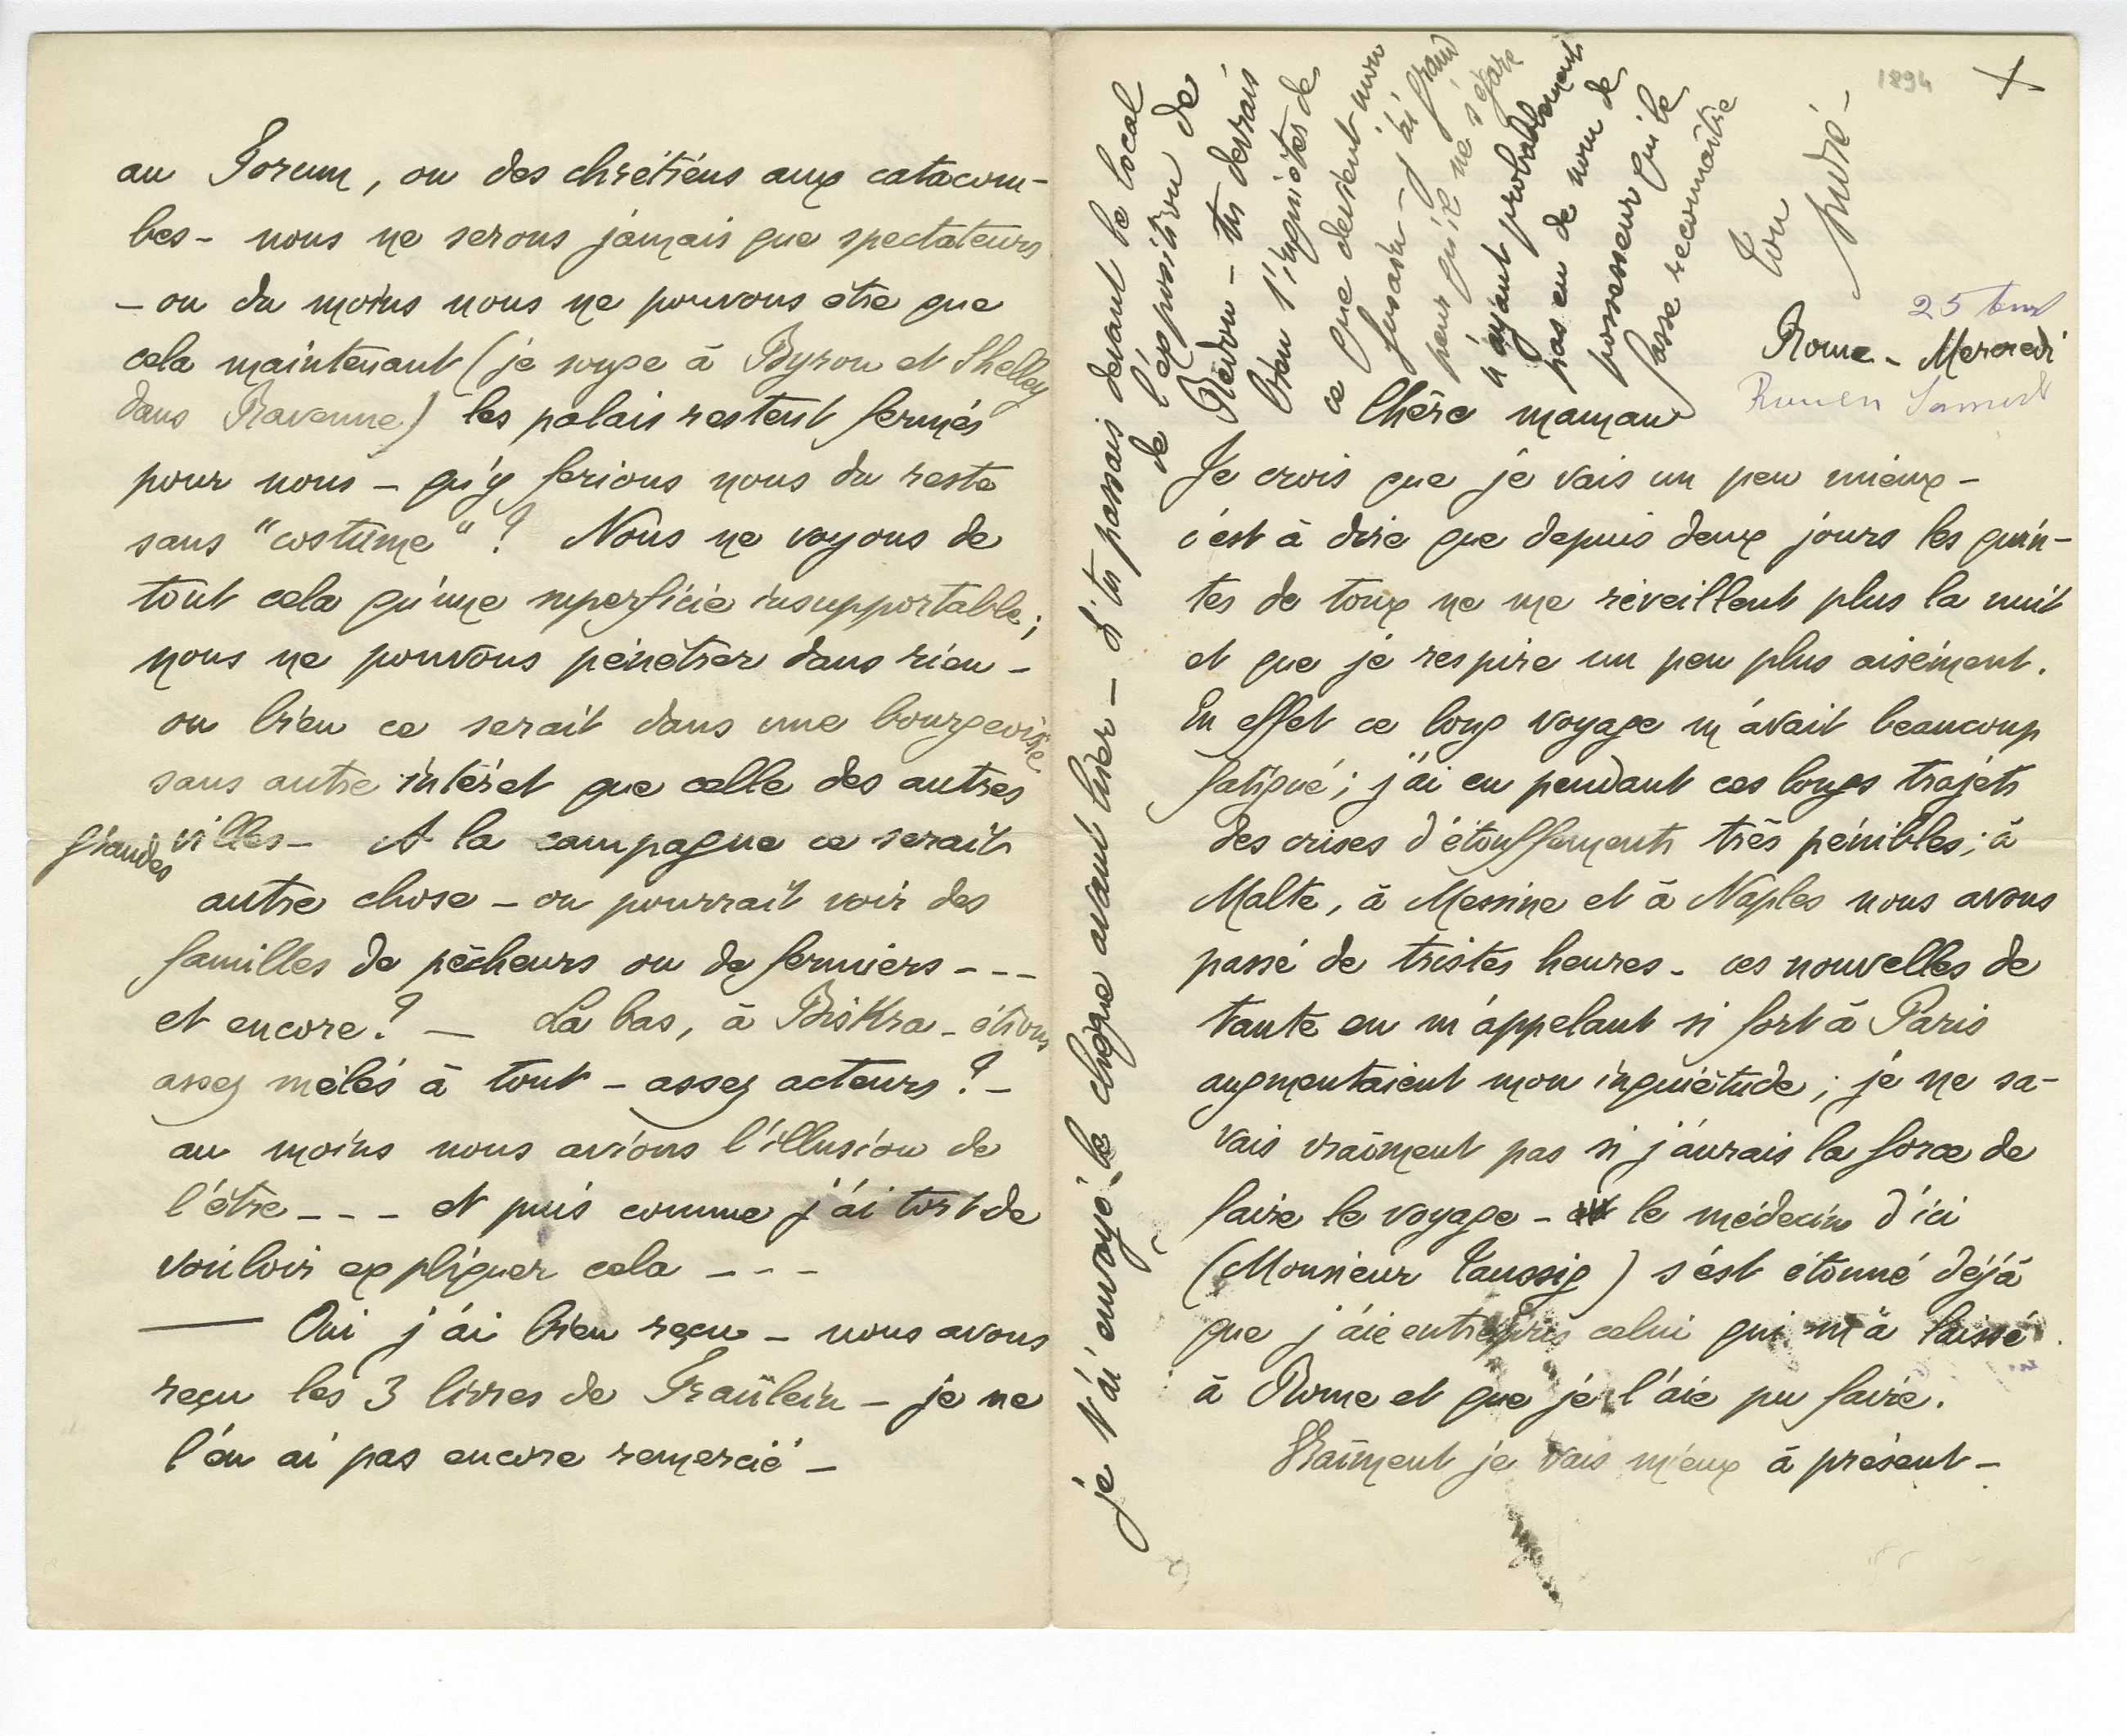 au Forum, ou des chrétiens aux catacom-
bes - nous ne serons jamais que spectateurs
- ou du moins nous ne pouvons être que
cela maintenant (je songe à Byron et Shelley
dans Ravenne) les palais restent fermés
pour nous - qu'y ferions nous du reste
sans "costume" ? Nous ne voyons de
tout cela qu'une superficie insupportable ;
nous ne pouvons pénétrer dans rien -
ou bien ce serait dans une bourgeoisie
sans autre intérêt que celle des autres
grandes villes - A la campagne ce serait
autre chose - on pourrait voir des
familles de pêcheurs ou de fermiers - - -
et encore ? - Là bas, à Biskra - étions
assez mêlés à tout - assez acteurs ? -
au moins nous avions l'illusion de
l'être - - - et puis comme j'ai tort de
vouloir expliquer cela - - -
— Oui j'ai bien reçu - nous avons
reçu les 3 livres de Fraülein - je ne
l'en ai pas encore remercié -
1894
25
Rome - Mercredi
Samedi
Chère maman
Je crois que je vais un peu mieux -
c'est à dire que depuis deux jours les quin-
tes de toux ne me réveillent plus la nuit
et que je respire un peu plus aisément.
En effet ce long voyage m'avait beaucoup
fatigué ; j'ai eu pendant ces longs trajets
des crises d'étouffements très pénibles ; à
Malte, à Messine et à Naples nous avons
passé de tristes heures - ces nouvelles de
tante en m'appelant si fort à Paris
augmentaient mon inquiétude ; je ne sa-
vais vraiment pas si j'aurais la force de
faire le voyage - le médecin d'ici
(Monsieur Taussig) s'est étonné déjà
que j'aie entrepris celui qui m'a laissé
à Rome et que je l'aie pu faire.
Vraiment je vais mieux à présent -
je t'ai envoyé le chèque avant hier - si tu passais devant le local
de l'exposition de
Redon - tu devrais
bien t'inquiéter de
ce que devient mon
fusain - j'ai grand
peur qu'il ne s'égare
n'ayant probablement
pas eu de nom de
possesseur qui le
fasse reconnaître
Ton
André -